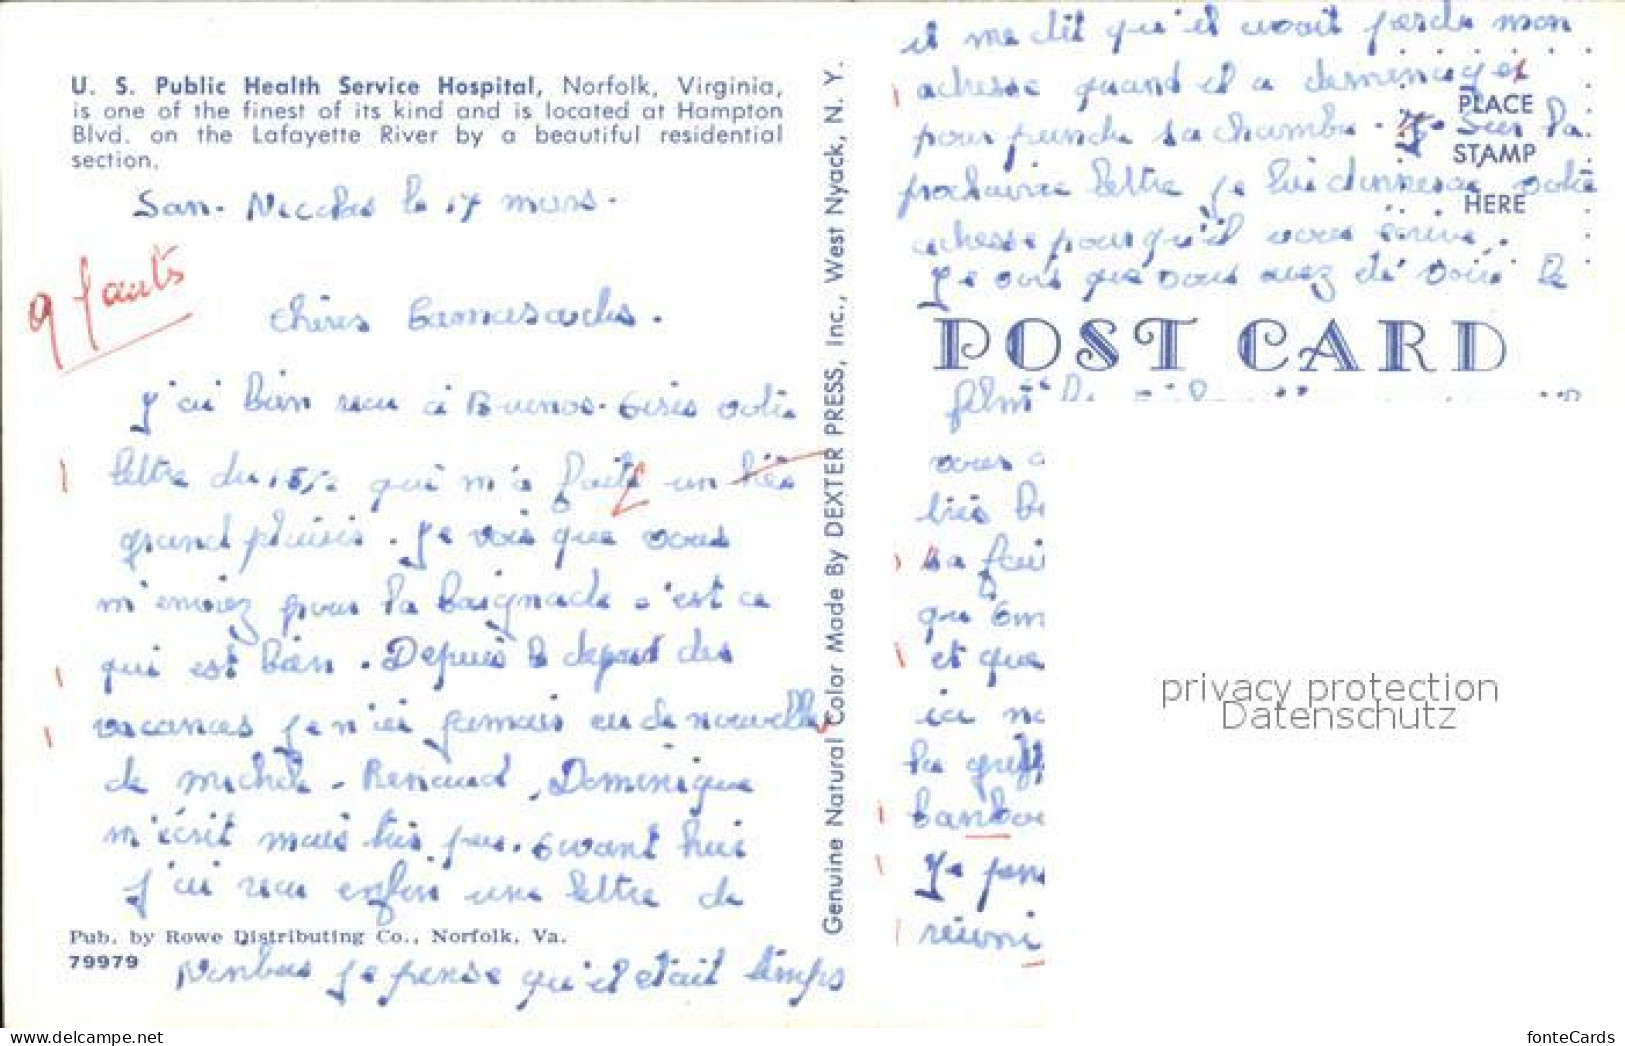 U. S. Public Health Service Hospital, Norfolk, Virginia,
is one of the finest of its kind and is located at Hampton
Blvd. on the Lafayette River by a beautiful residential
section.
San. Nicolas le 17 mars.
9 fauts
Chères Camarades.
J'ai bien reçu à Buenos-Aires votre
lettre du qui m'a faite un très
grand plaisir. Je vois que vous
m'enviez pour la baignade c'est ce
qui est bien. Depuis le depart des
vacances je n'ai jamais eu de nouvelle
de Michel. Renaud, Dominique
m'écrit mais très peu. Avant hui
j'ai reçu enfin une lettre de
Pub. by Rowe Distributing Co., Norfolk, Va.
79979
Nimbus je pense qu'il était temps
Genuine Natural Color Made By DEXTER PRESS, Inc., West Nyack, N. Y.
il me dit qu'il avait perdu mon
adresse quand il a demenager
pour peindre sa chambre. Sur la
prochaine lettre je lui donnerai votre
adresse pour qu'il vous écrive.
Je vois que vous avez été voir le
PLACE
STAMP
HERE
POST CARD
film
vous
très
sa
que
et que
ici
la
Je
réuni
privacy protection
Datenschutz
www.delcampe.net
fonteCards